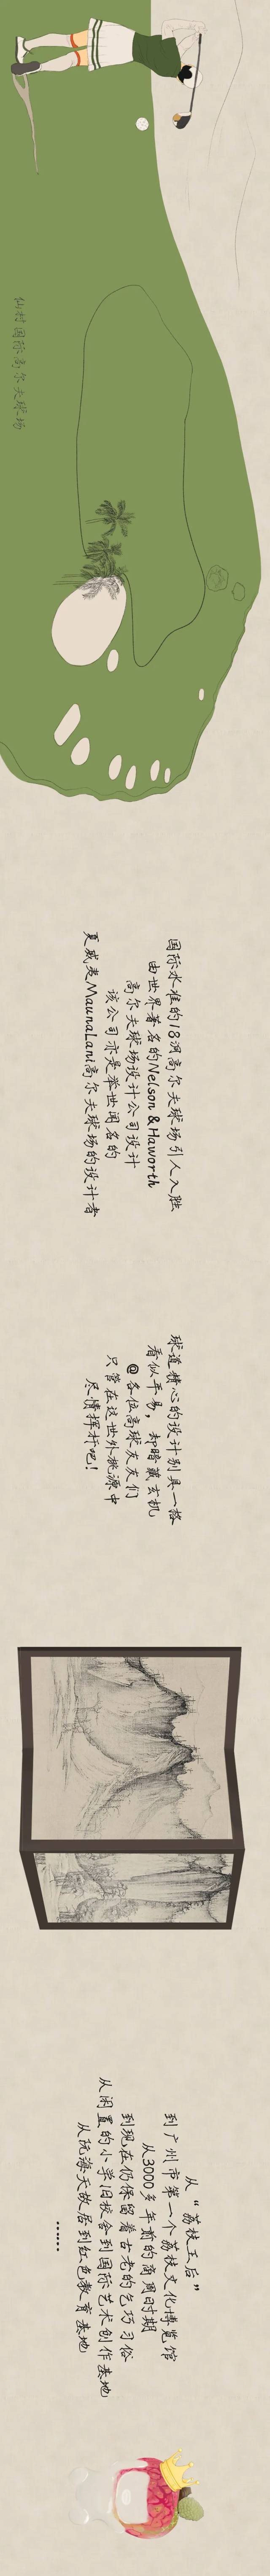 仙村国际高尔夫球场
国际水准的18洞高尔夫球场引人入胜
由世界著名的Nelson & Haworth
高尔夫球场设计公司设计
该公司亦是举世闻名的
夏威夷MaunaLani高尔夫球场的设计者
球道精心的设计别具一格
看似平易，却暗藏玄机
@各位高球友友们
只管在这世外桃源中
尽情挥杆吧！
从“荔枝王后”
到广州市第一个荔枝文化博览馆
从3000多年前的商周时期
到现在仍保留着古老的乞巧习俗
从闲置的小学旧校舍到国际艺术创作基地
从阮海天故居到红色教育基地
……